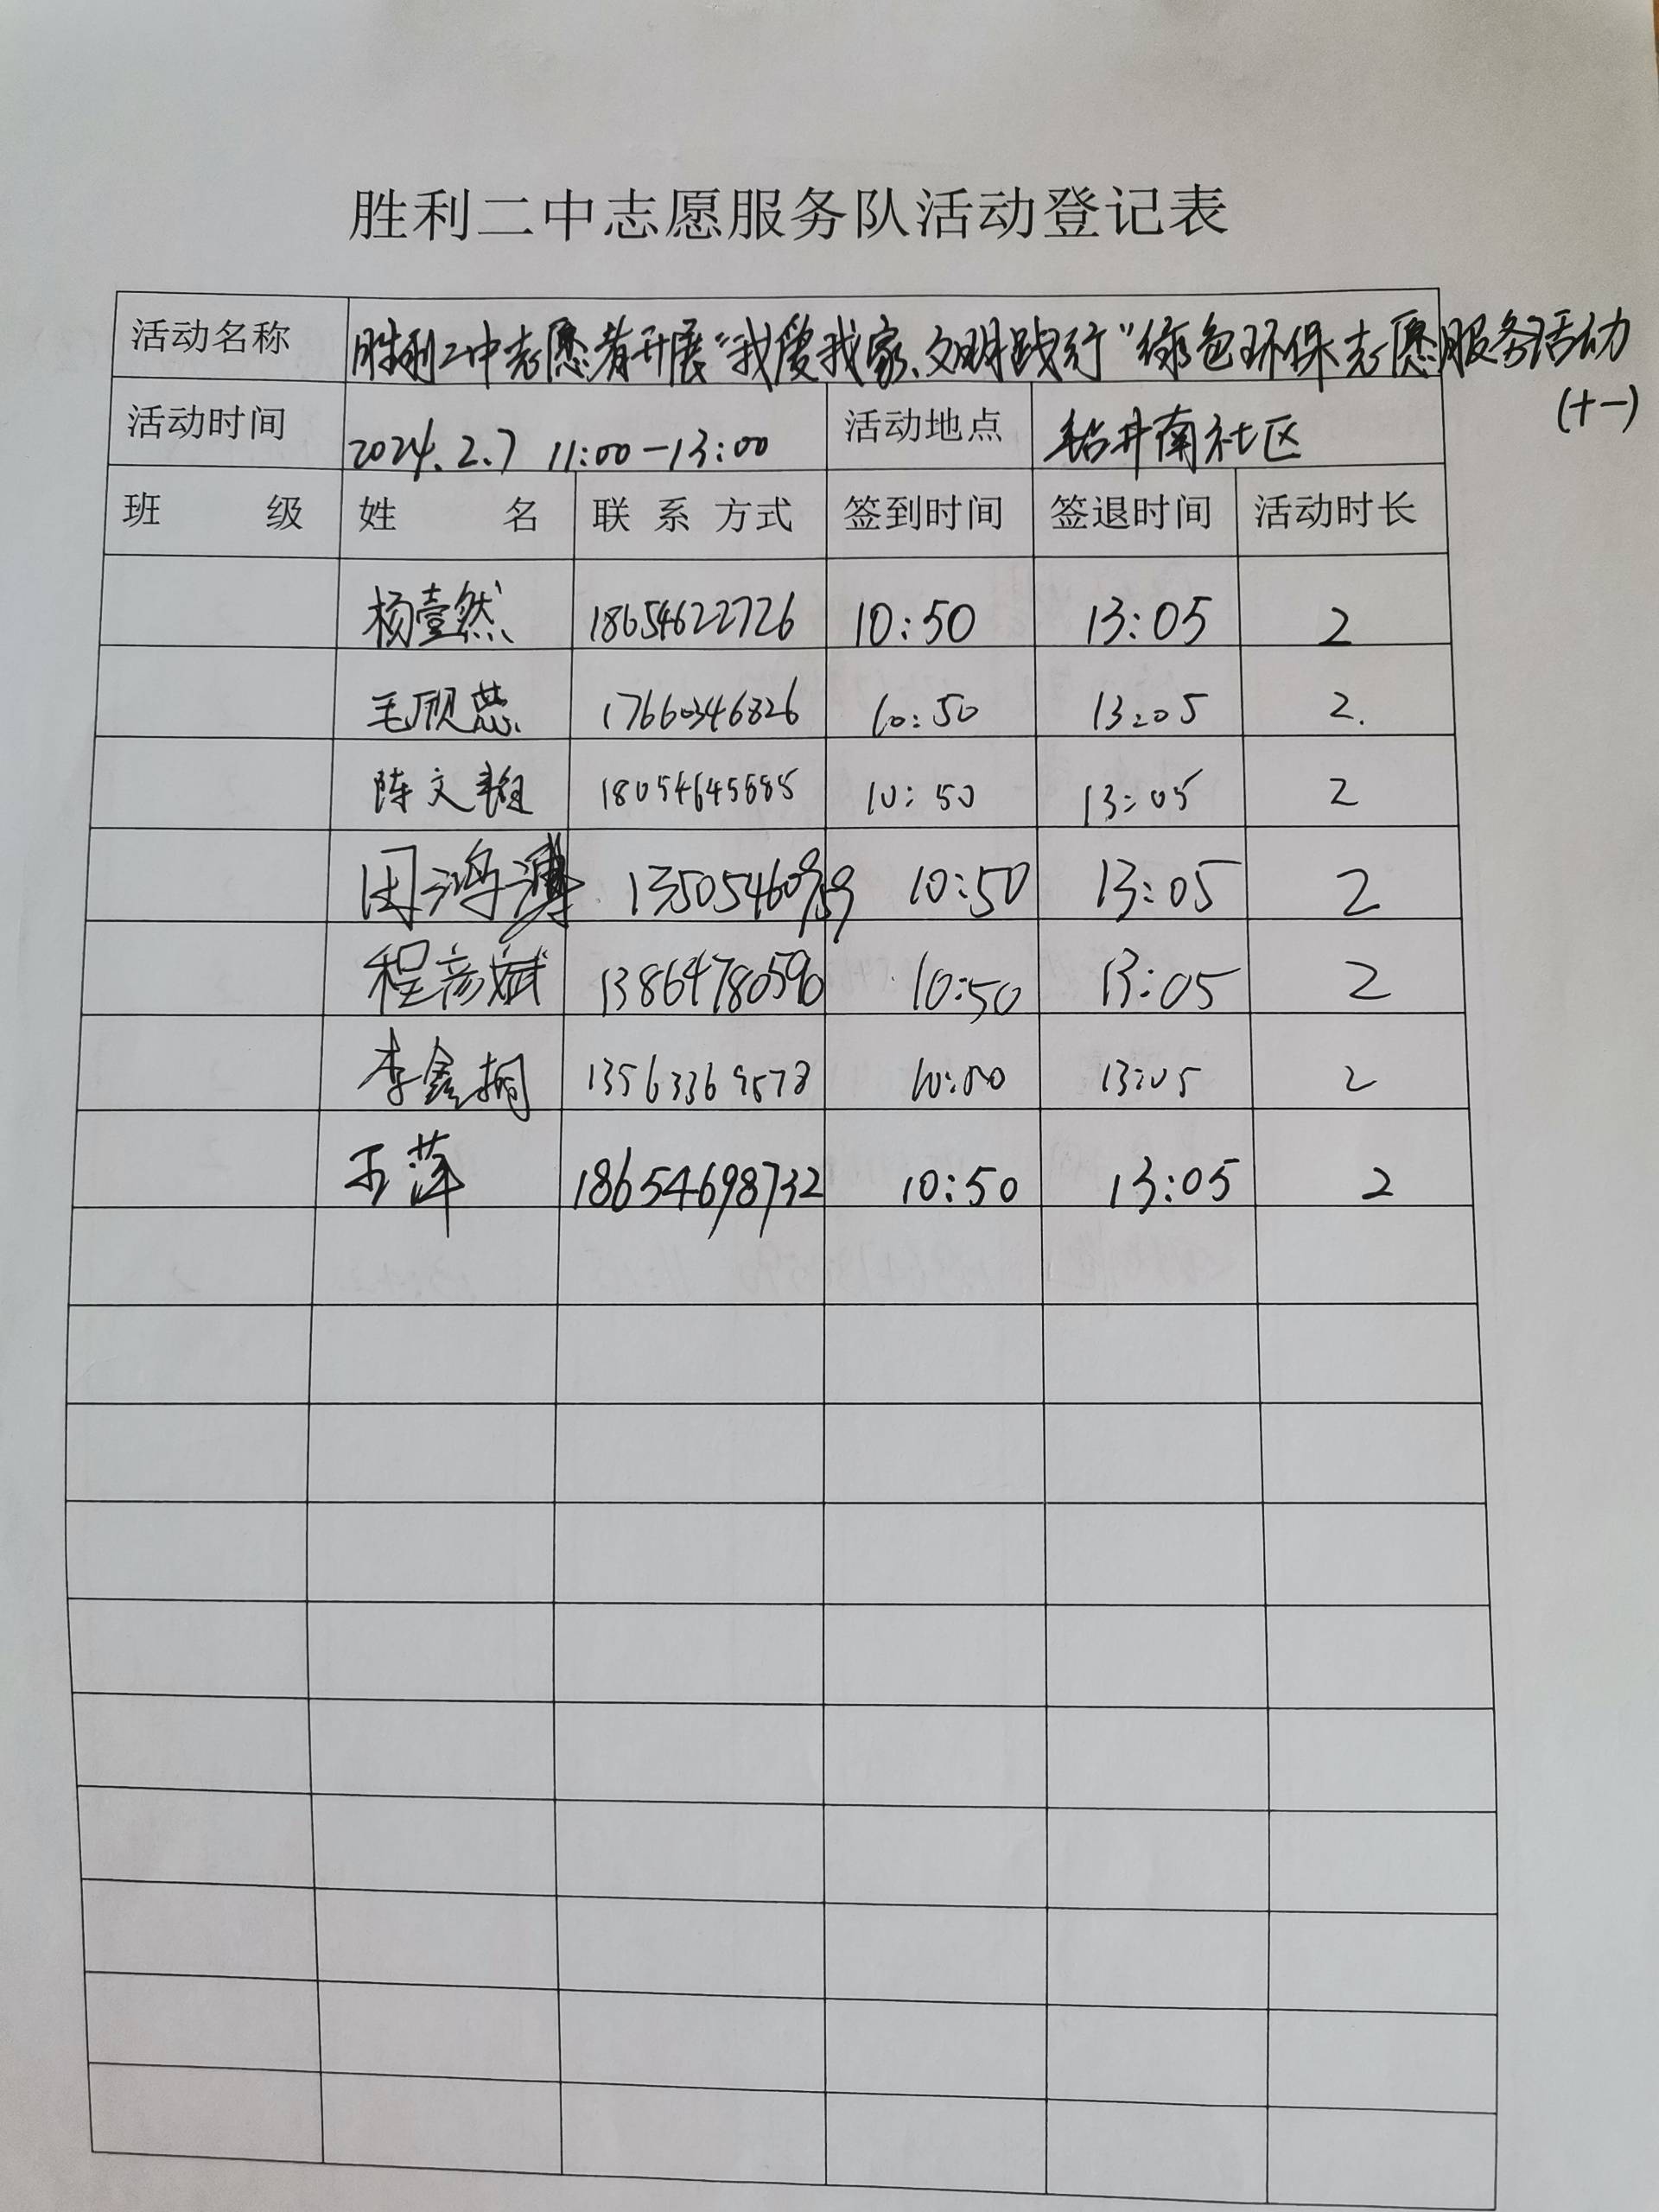 胜利二中志愿服务队活动登记表
活动名称 胜利二中志愿者开展“我爱我家、文明践行”绿色环保志愿服务活动
(十一)
活动时间 2024.2.7 11:00-13:00 活动地点 钻井南社区
班 级 姓 名 联系方式 签到时间 签退时间 活动时长
杨壹然 18654622726 10:50 13:05 2
毛欣蕊 17660346826 10:50 13:05 2.
陈文 10:50 13:05 2
鸿 10:50 13:05 2
程彦斌 13864780590 10:50 13:05 2
李鑫桐 13563369578 13:05 2
王萍 18654698732 10:50 13:05 2